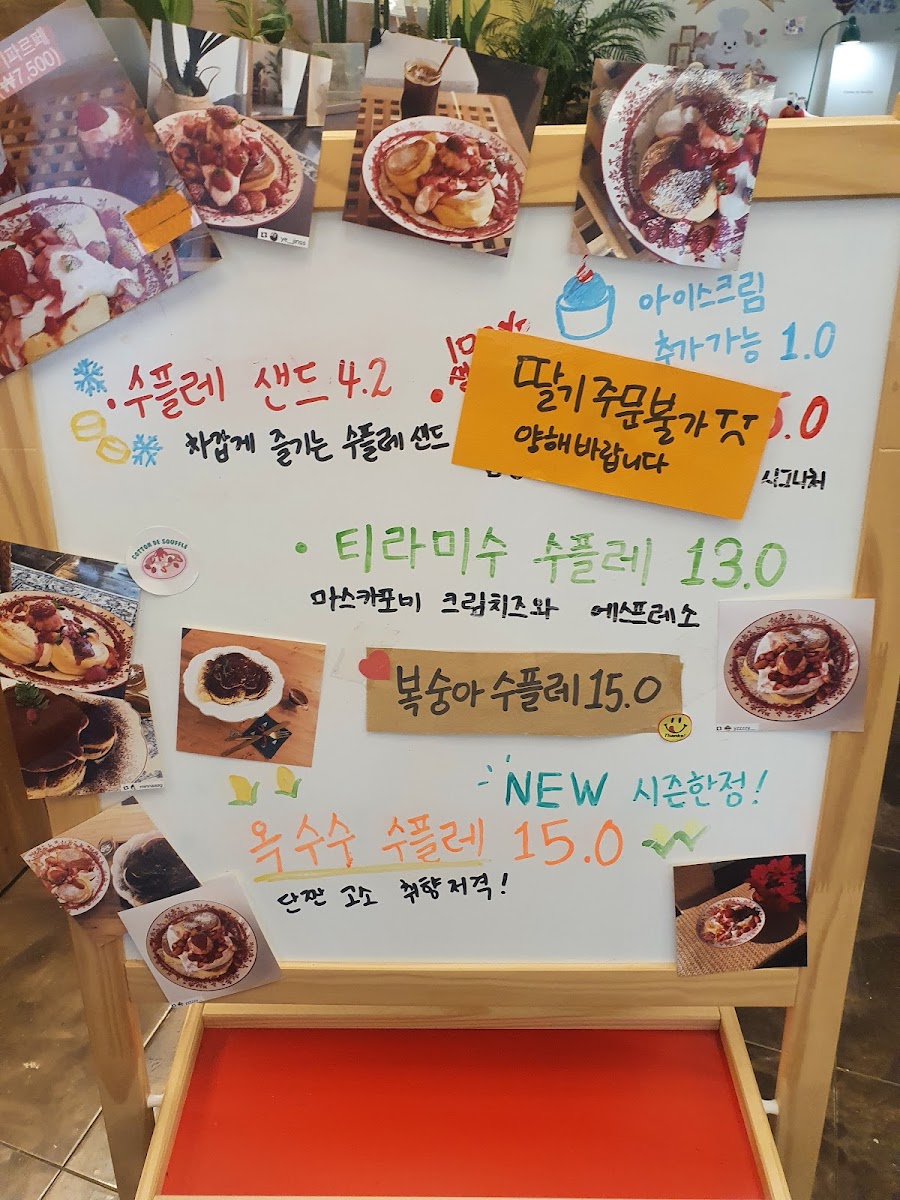 파르페
₩7,500)
ye__jinss
아이스크림
추가가능 1.0
수플레 샌드 4.2
차갑게 즐기는 수플레 샌드
딸기 주문불가 ㅠㅠ
양해바랍니다
5.0
시그니처
COTTON DE SOUFFLE
티라미수 수플레 13.0
마스카포네 크림치즈와 에스프레소
복숭아 수플레 15.0
Thanks!
NEW 시즌한정!
옥수수 수플레 15.0
단짠 고소 취향저격!